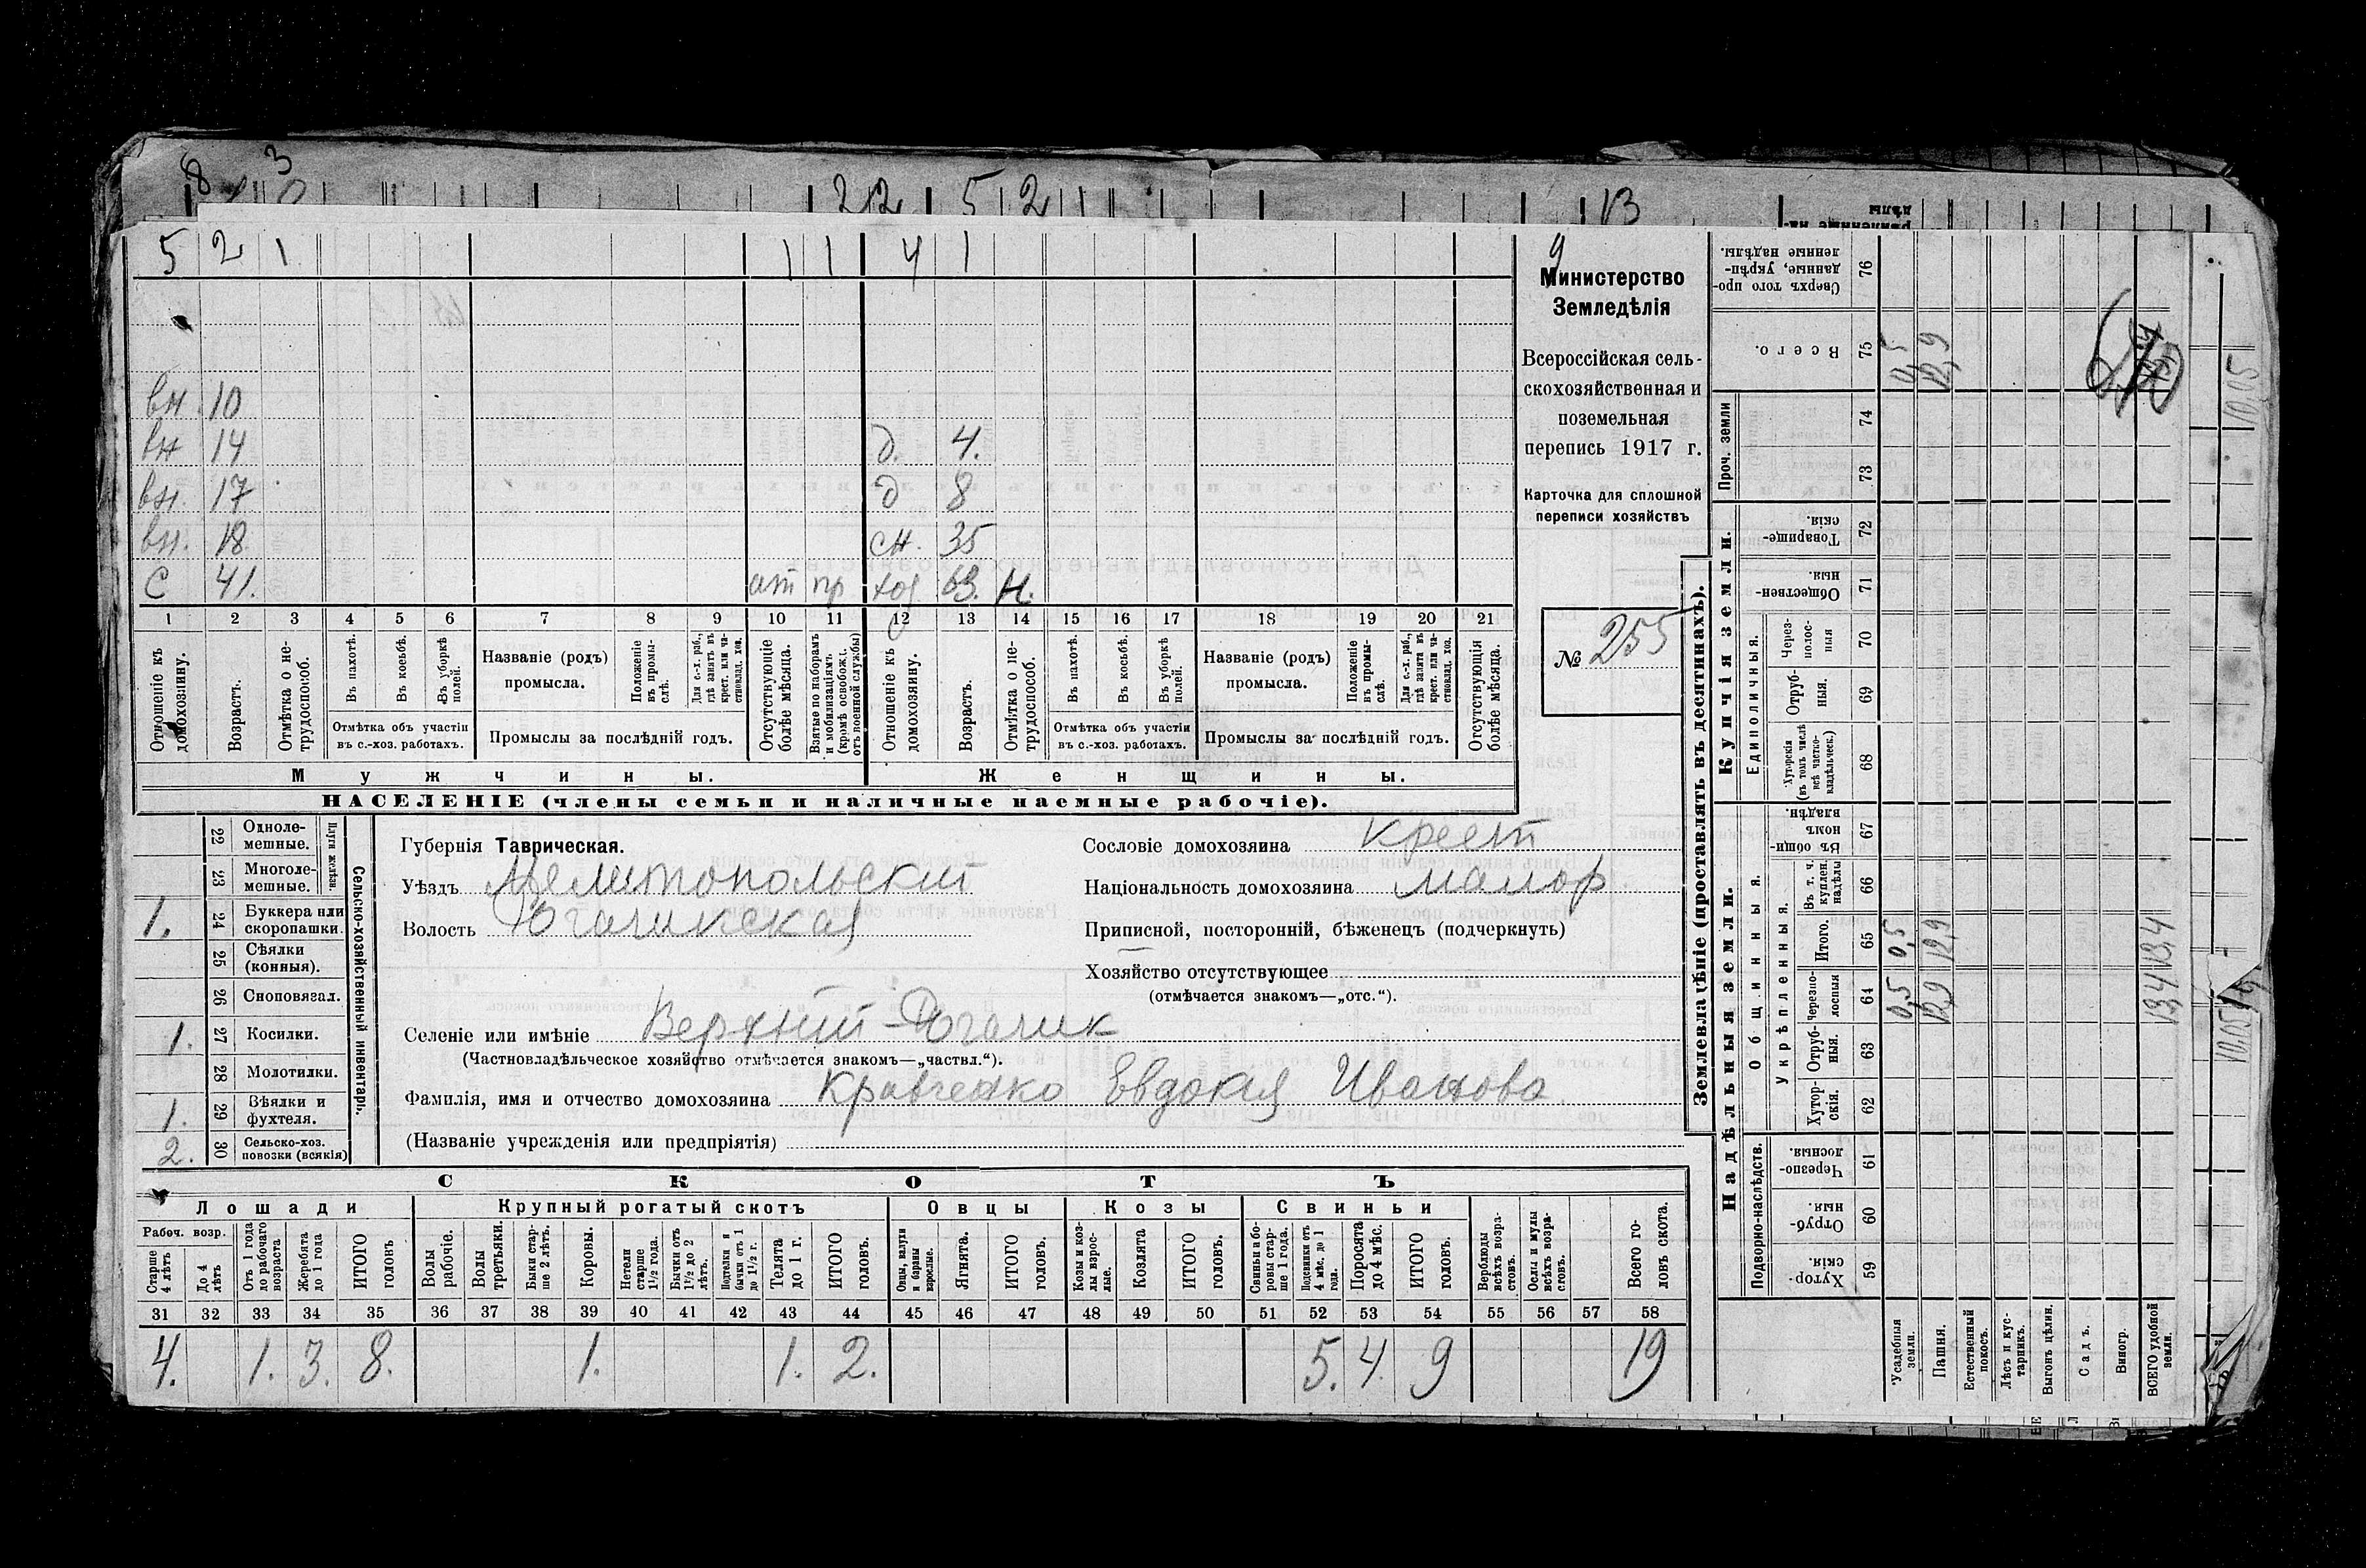 8 3 22 5 2 13
5 2 1 1 1 4 1 9
вн. 10
вн 14 д. 4.
вн. 17 д 8
вн. 18 сн. 35
С 41. от пр хоз 63. н.
1 2 3 4 5 6 7 8 9 10 11 12 13 14 15 16 17 18 19 20 21
Отношеніе къ домохозяину.
Возрастъ.
Отмѣтка о нетрудоспособ.
Въ пахотѣ.
Въ косьбѣ.
Въ уборкѣ полей.
Отмѣтка объ участіи въ с.-хоз. работахъ.
Названіе (родъ) промысла.
Положеніе въ промыслѣ.
Для с.-х. раб., гдѣ занятъ въ крест. или частновлад. хоз.
Промыслы за послѣдній годъ.
Отсутствующіе болѣе мѣсяца.
Взятые по наборамъ и мобилизаціямъ (кромѣ освобожд. отъ военной службы)
Отношеніе къ домохозяину.
Возрастъ.
Отмѣтка о нетрудоспособ.
Въ пахотѣ.
Въ косьбѣ.
Въ уборкѣ полей.
Отмѣтка объ участіи въ с.-хоз. работахъ.
Названіе (родъ) промысла.
Положеніе въ промыслѣ.
Для с.-х. раб., гдѣ занята въ крест. или частновлад. хоз.
Промыслы за послѣдній годъ.
Отсутствующія болѣе мѣсяца.
Мужчины. Женщины.
НАСЕЛЕНІЕ (члены семьи и наличные наемные рабочіе).
Министерство
Земледѣлія
Всероссійская сель-
скохозяйственная и
поземельная
перепись 1917 г.
Карточка для сплошной
переписи хозяйствъ
№ 255
Сельско-хозяйственный инвентарь.
Плуги желѣзн.
22 Однолемешные.
23 Многолемешные.
1. 24 Буккера или скоропашки.
25 Сѣялки (конныя).
26 Сноповязал.
1. 27 Косилки.
28 Молотилки.
1. 29 Вѣялки и фухтеля.
2. 30 Сельско-хоз. повозки (всякія)
Губернія Таврическая.
Уѣздъ Мелитопольский
Волость Рогачикская
Сословіе домохозяина крест
Національность домохозяина малор
Приписной, посторонній, бѣженецъ (подчеркнуть)
Хозяйство отсутствующее
(отмѣчается знакомъ—„отс.“).
Селеніе или имѣніе Верхний-Рогачик
(Частновладѣльческое хозяйство отмѣчается знакомъ—„частвл.“).
Фамилія, имя и отчество домохозяина Кравченко Евдокия Иванова
(Названіе учрежденія или предпріятія)
СКОТЪ
Лошади Крупный рогатый скотъ Овцы Козы Свиньи
Рабоч. возр.
Старше 4 лѣтъ
До 4 лѣтъ
Отъ 1 года до рабочаго возраста
Жеребята до 1 года
ИТОГО головъ
Волы рабочіе.
Волы третьяки.
Быки старше 2 лѣтъ.
Коровы.
Нетели старше 1½ года.
Бычки отъ 1½ до 2 лѣтъ.
Подтелки и бычки отъ 1 до 1½ г.
Телята до 1 г.
ИТОГО головъ.
Овцы, валухи и бараны взрослые.
Ягнята.
ИТОГО головъ.
Козы и козлы взрослые.
Козлята
ИТОГО головъ.
Свиньи и боровы старше 1 года.
Подсвинки отъ 4 мѣс. до 1 года.
Поросята до 4 мѣс.
ИТОГО головъ.
Верблюды всѣхъ возрастовъ.
Ослы и мулы всѣхъ возрастовъ.
Всего головъ скота.
31 32 33 34 35 36 37 38 39 40 41 42 43 44 45 46 47 48 49 50 51 52 53 54 55 56 57 58
4. 1. 3. 8. 1. 1. 2. 5. 4. 9 19
Землевладѣніе (проставлять въ десятинахъ).
Надѣльныя земли.
Купчія земли.
Проч. земли
Подворно-наслѣдств.
Общинныя.
Укрѣпленныя.
Единоличныя.
Хуторскія. 59
Отрубныя. 60
Черезполосныя. 61
Хуторскія. 62
Отрубныя. 63
Черезполосныя 64
Итого. 65
Въ т. ч. куплен. надѣлы 66
Въ общинномъ владѣн. 67
Хуторскія (въ томъ числѣ всѣ частновладѣльческ.) 68
Отрубныя. 69
Черезполосныя 70
Общественныя. 71
Товарищескія. 72
73
74
Всего. 75
Сверхъ того проданные, укрѣпленные надѣлы. 76
Усадебныя земли. 0,5 0,5 0,5
Пашня. 12,9 12,9 12,9
Естественный покосъ.
Лѣсъ и кустарникъ.
Выгонъ цѣлин.
Садъ.
Виногр.
ВСЕГО удобной земли. 13,4 13,4
10,05
10,05